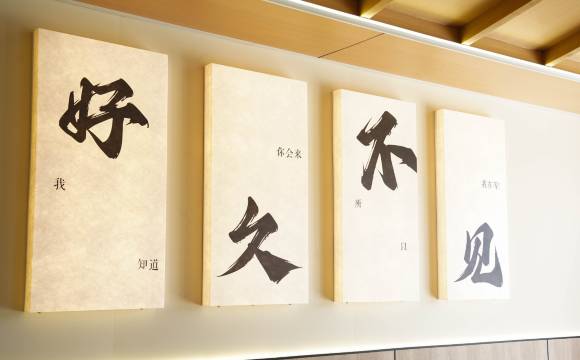 好
我
知道
你会来
久
不
所
以
见